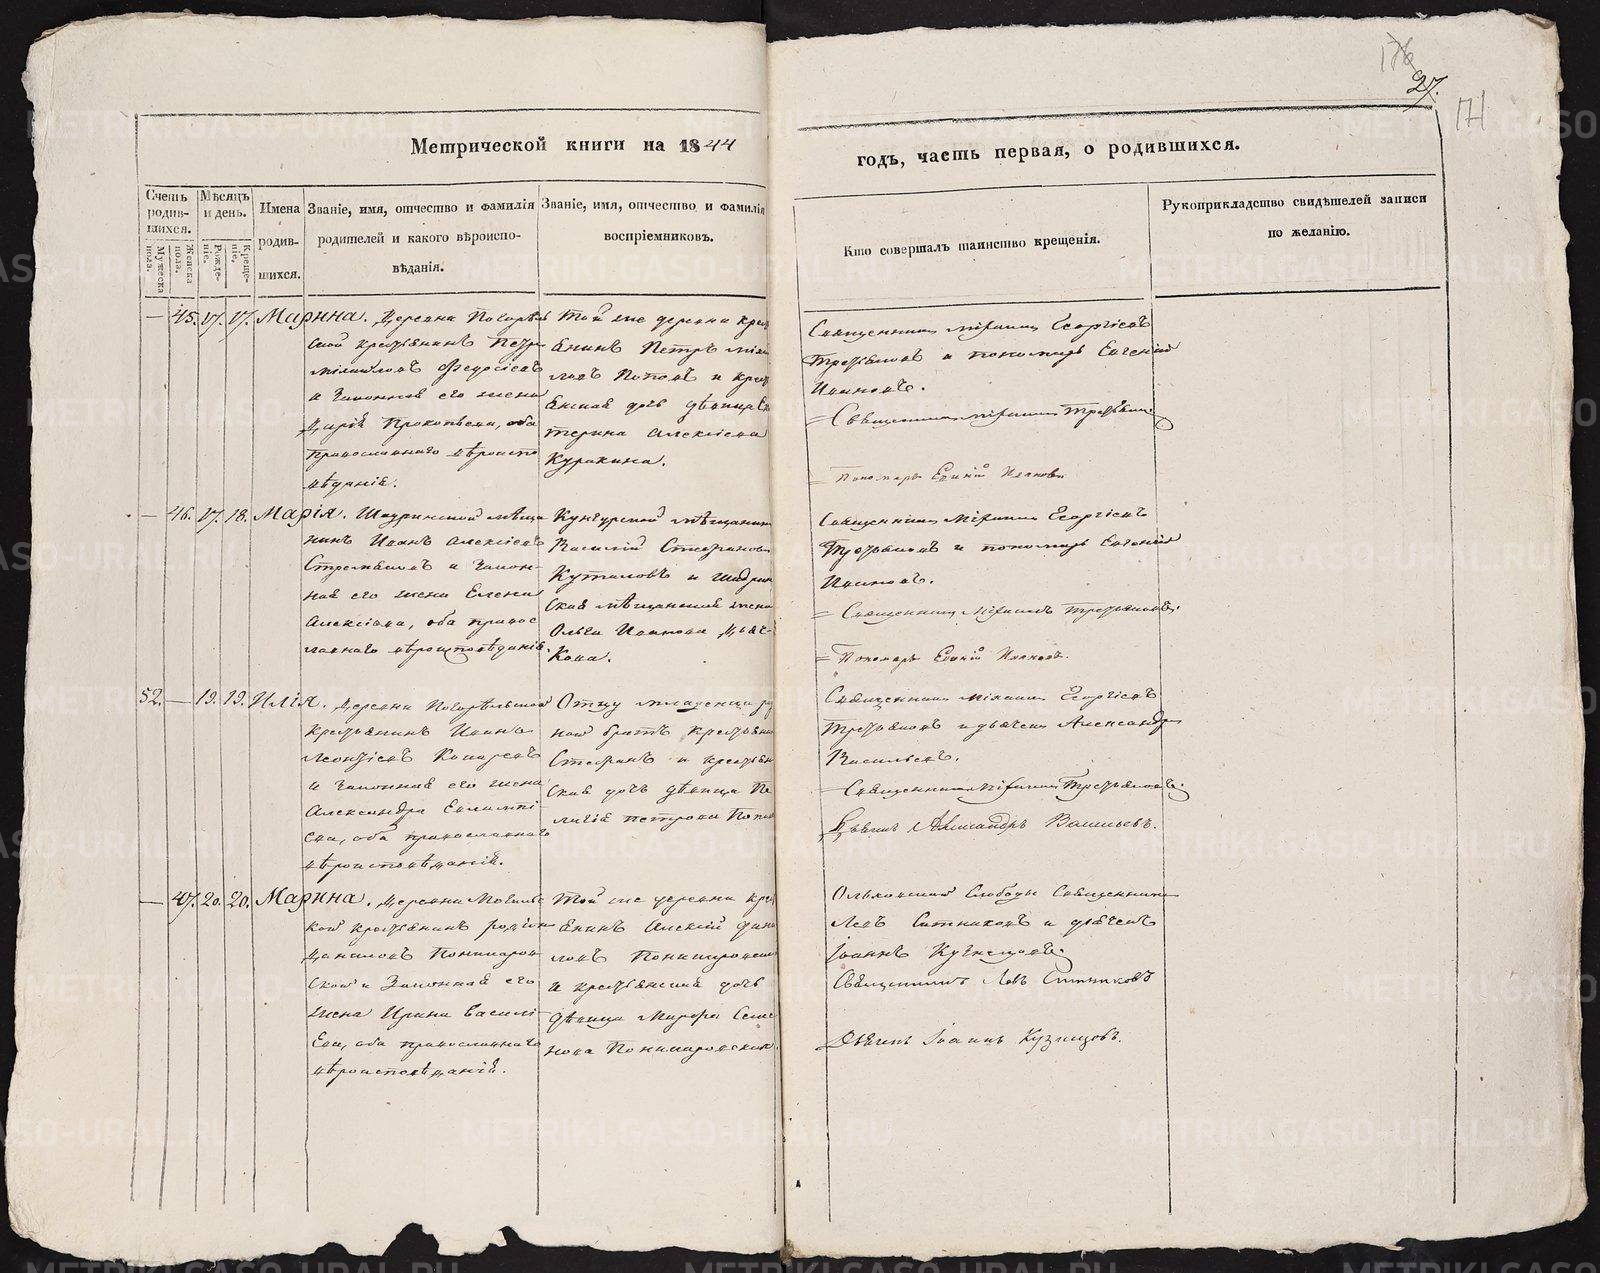 176
27.
171
Метрической книги на 1844
годъ, часть первая, о родившихся.
Счетъ родившихся.
Мужеска пола.
Женска пола.
Мѣсяцъ и день.
Рожденіе.
Крещеніе.
Имена родившихся.
Званіе, имя, отчество и фамилія
родителей и какого вѣроиспо-
вѣданія.
Званіе, имя, отчество и фамилія
воспріемниковъ.
Кто совершалъ таинство крещенія.
Рукоприкладство свидѣтелей записи
по желанію.
— 45. 17. 17. Марина. Деревни Погорѣль
ской крестьянинъ Петръ
Михайловъ Ѳедосѣевъ
и законная его жена
Дарія Прокопьева, оба
православнаго вѣроиспо
вѣданія.
Той же деревни крест
янинъ Петръ Михаи
ловъ Поповъ и крест
янская дочь дѣвица Ека
терина Алексіева
Куракина.
Священникъ Михаилъ Георгіевъ
Третьяковъ и пономарь Евгеній
Ивановъ.
= Священникъ Михаилъ Третьяковъ
= Пономарь Евгній Ивановъ
— 46. 17. 18. Марія. Шадринской мѣща
нинъ Иванъ Алексіевъ
и закон-
ная его жена Елена
Алексіева, оба правос
лавнаго вѣроисповѣданія.
Кунгурской мѣщанинъ
Василій Стефановъ
и Шадрин
ская мѣщанская жена
Ольга Иванова Дьяч-
кова.
Священникъ Михаилъ Георгіевъ
Третьяковъ и пономарь Евгеній
Ивановъ.
= Священникъ Михаилъ Третьяковъ.
= Пономарь Евгній Ивановъ.
52. — 19. 19. Илія. Деревни Погорѣльской
крестьянинъ Иванъ
Леонтіевъ
и законная его жена
Александра Евлампі-
ева, оба православнаго
вѣроисповѣданія.
Отцу младенца род
ной братъ крестьянинъ
Стефанъ и крестьян
ская дочь дѣвица Пе
лагія Петрова Попова
Священникъ Михаилъ Георгіевъ
Третьяковъ и дьячекъ Александръ
Васильевъ.
= Священникъ Михаилъ Третьяковъ.
Дьячекъ Александръ Васильевъ.
— 47. 20. 20. Марина. Деревни
кой крестьянинъ Родіонъ
Даниловъ Пономаров
ской и законная его
жена Ирина Василі-
ева, оба православнаго
вѣроисповѣданія.
Той же деревни крест
янинъ Алексій Дани
ловъ Пономаровской
и крестьянская дочь
дѣвица Марфа Семе
нова Пономаровская.
Ольховской Слободы Священникъ
Левъ Ситниковъ и дьячекъ
Іоаннъ Кузнецовъ.
Священникъ Левъ Ситниковъ
Дьячекъ Іоаннъ Кузнецовъ.
METRIKI.GASO-URAL.RU